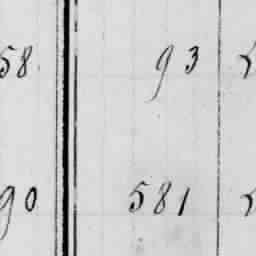 58. 93
90 581